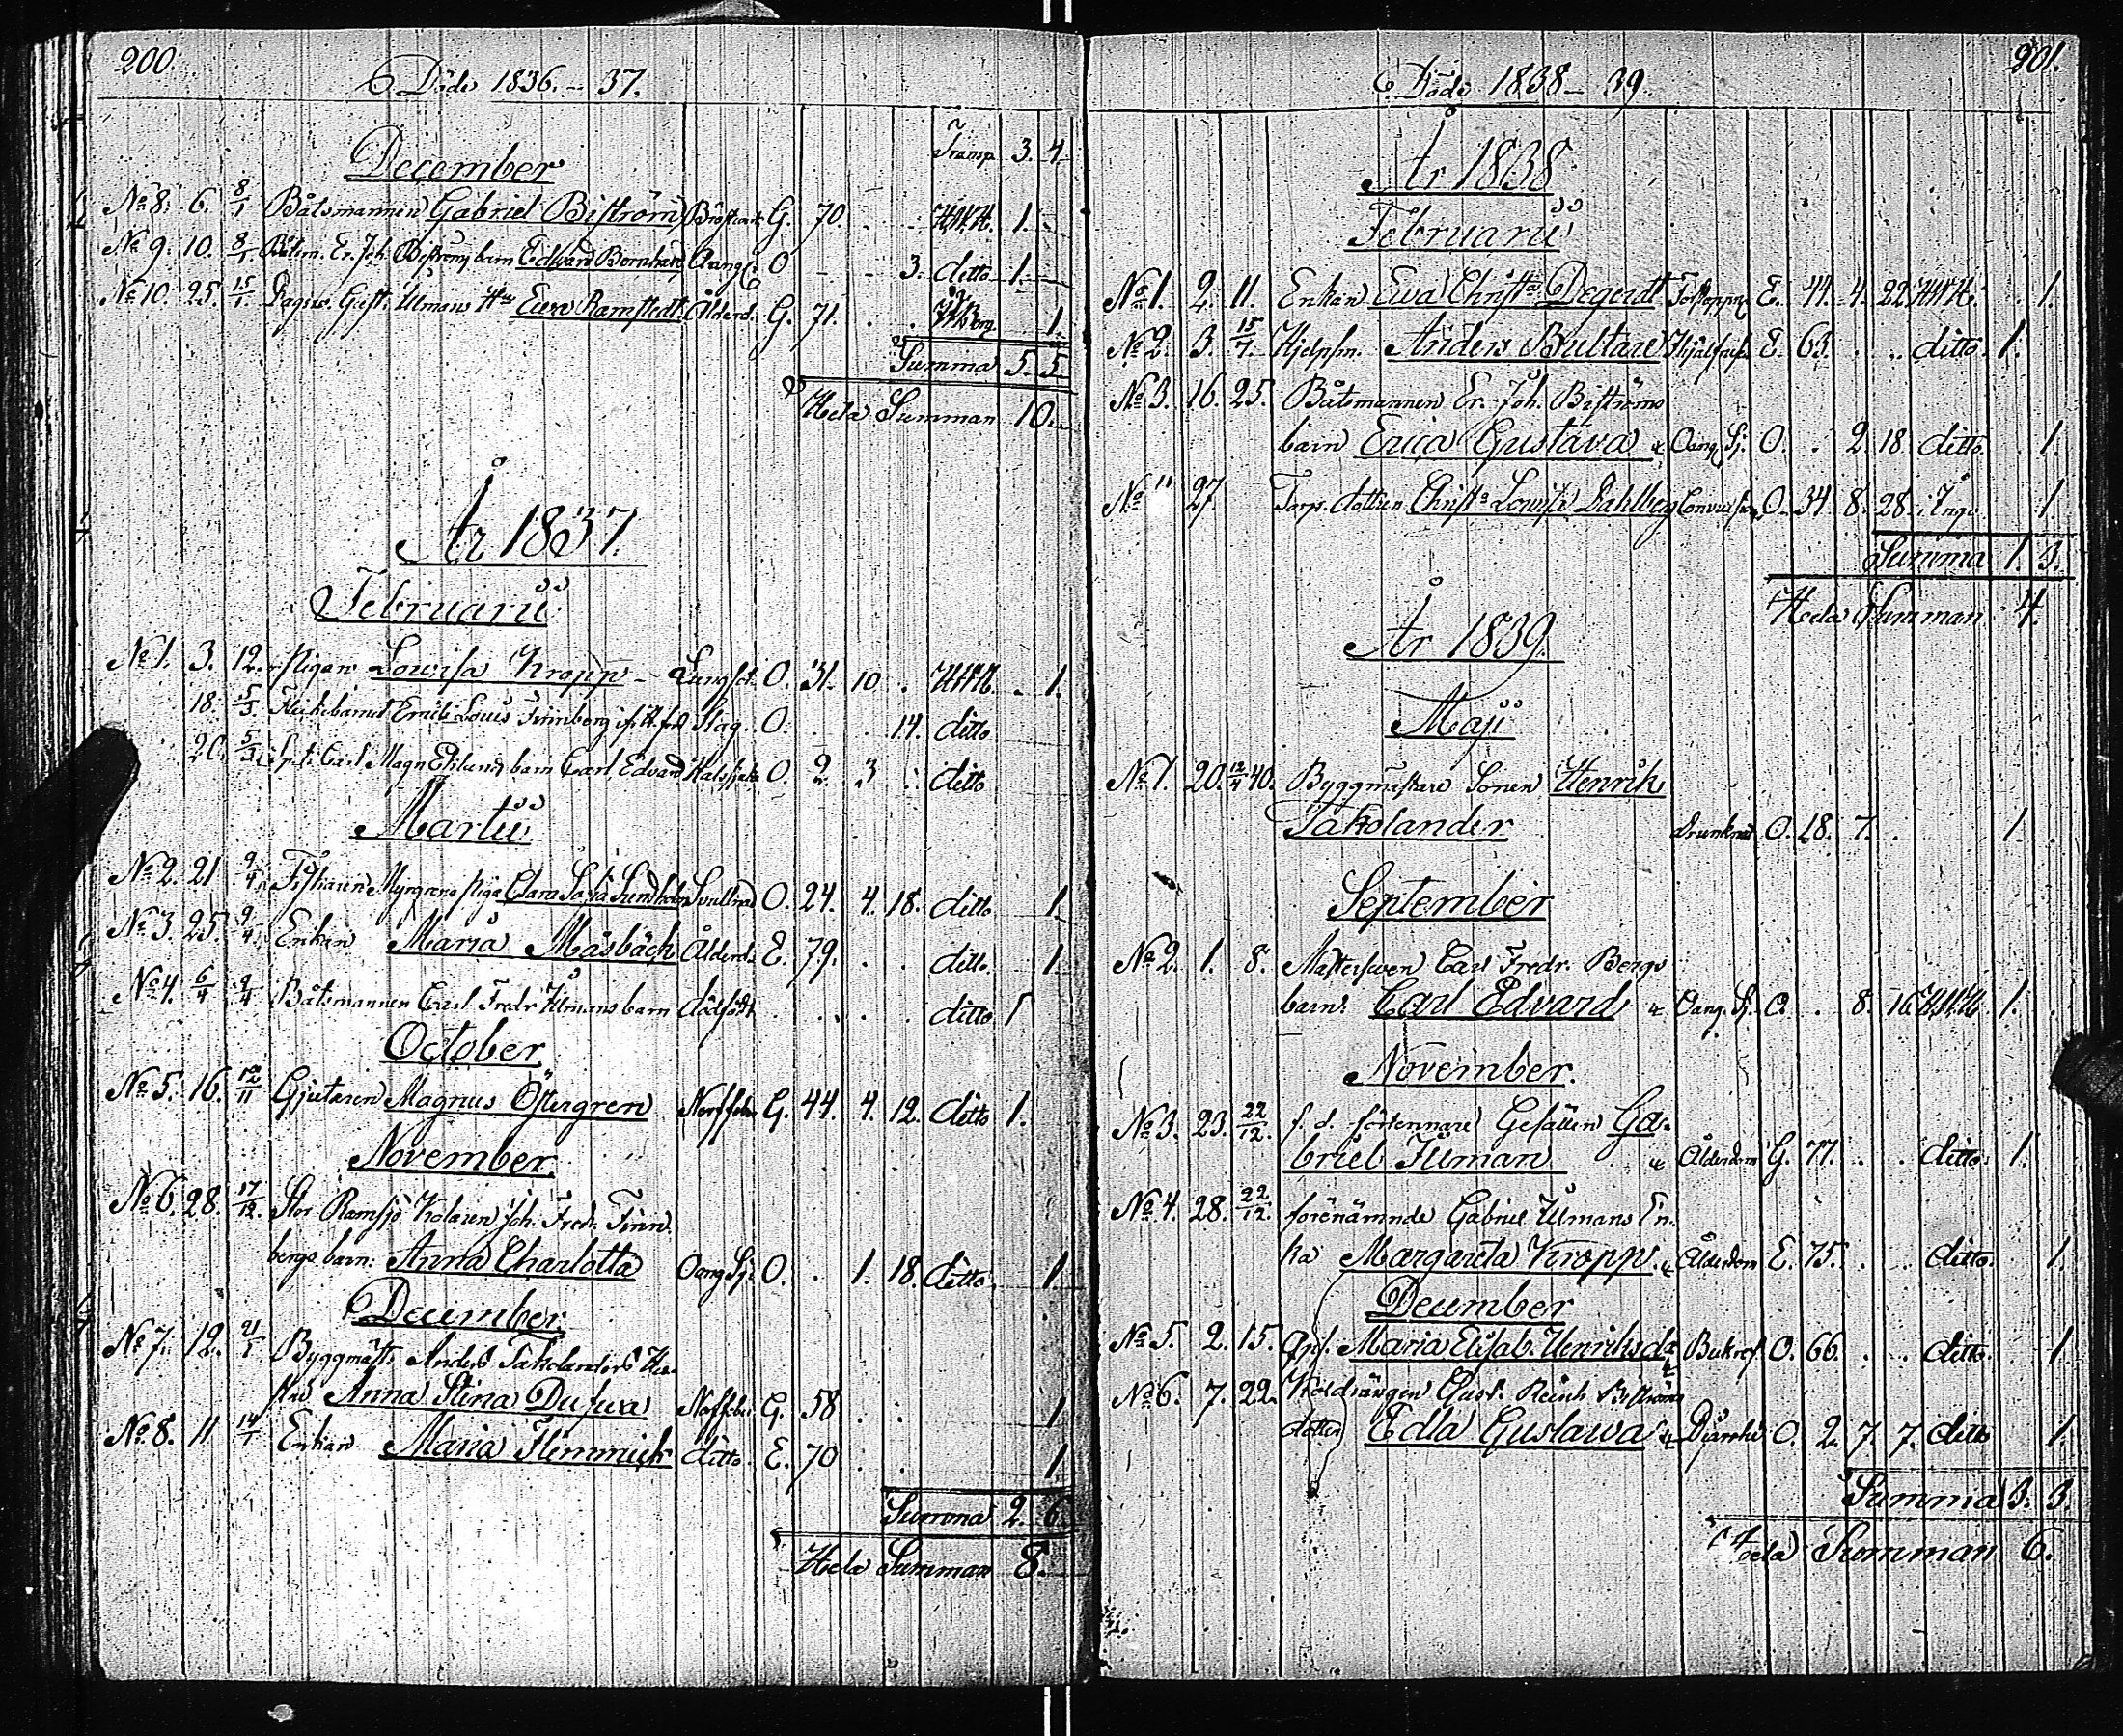 200.
Döde 1836.-37.
Transp. 3. 4.
December
No 8. 6. 8/1 Båtsmannen Gabriel Biström G. 70. 1.
No 9. 10. 8/1 Båtsm. Er. Joh. Biströms barn Edvard Bernhard O - - 3. ditto 1.
No 10. 25. 15/1 Gust. Ulmans Ha Eva Ramstedt Ålderd. G. 71. 1.
Summa 5. 5.
Hela Summan 10.
År 1837.
Februarii
No 1. 3. 12. Pigan Lovisa Kropp Lungsot. O. 31. 10 1.
18. 5/3. Flickebarnet Emili Lovis Finnberg Slag. O. 14. ditto
20. 5/3 Carl Magn Eklunds barn Carl Edvard O. 2. 3 ditto
Martii
No 2. 21 9/4 Fiskaren Myrgrens piga Clara Sofia Sundholm O. 24. 4. 18. ditto 1.
No 3. 25. 9/4. Enkan Maria Måsbäck Ålderd. E. 79. ditto. 1.
No 4. 6/4 9/4 Båtsmannen Carl Fredr Ulmans barn dödfödt ditto 1
October
No 5. 16. 12/11 Gjutaren Magnus Östergren G. 44. 4. 12. ditto 1.
November
No 6. 28. 17/12. Stor Ramsjö Kolaren Joh. Fredr. Finn-
bergs barn: Anna Charlotta Oang Sj. O. . 1. 18. ditto. 1
December
No 7. 12. 21/1 Byggmäst. Anders Takolanders Hu-
stru Anna Stina Dufva G. 58 1
No 8. 11 14/1 Enkan Maria Flemmich ditto. E. 70 1
Summa 2. 6.
Hela Summan 8.
201.
Döde 1838-39.
År 1838
Februarii
No 1. 2. 11. Enkan Eva Christa Degerdt E. 44. 4. 22. 1.
No 2. 3. 15/7. Hjelpsm. Anders Bultare E. 63. ditto. 1.
No 3. 16. 25. Båtsmannen Er. Joh. Biströms
barn Erica Gustava Oang Sj. O. . 2. 18. ditto. 1.
No " 27. Torp. dottren Christa Lovisa Dahlberg O. 34 8. 28. i Ingo 1
Summa 1. 3.
Hela Summan 4.
År 1839.
Maji
No 1. 20. 12/4 40. Byggmästare Sonen Henrik
Takolander Drunknat O. 28. 7. 1.
September
No 2. 1. 8. Mästersven Carl Fredr. Bergs
barn: Carl Edvard Oang. Sj. O. . 8. 16. 1.
November.
No 3. 23. 22/12. f. d. förtennare Gesällen Ga-
briel Ilman Ålderdom G. 77. ditto. 1.
No 4. 28. 22/12. förenämnde Gabriel Ulmans En-
ka Margareta Kropp Ålderdom E. 75. ditto. 1.
December
No 5. 2. 15. Maria Elisab. Henriksdr O. 66. ditto. 1.
No 6. 7. 22. Koldrängen Gust. Reinh Biströms
dotter Edla Gustawa O. 2. 7. 7. ditto 1.
Summa 3. 3
Hela Summan 6.